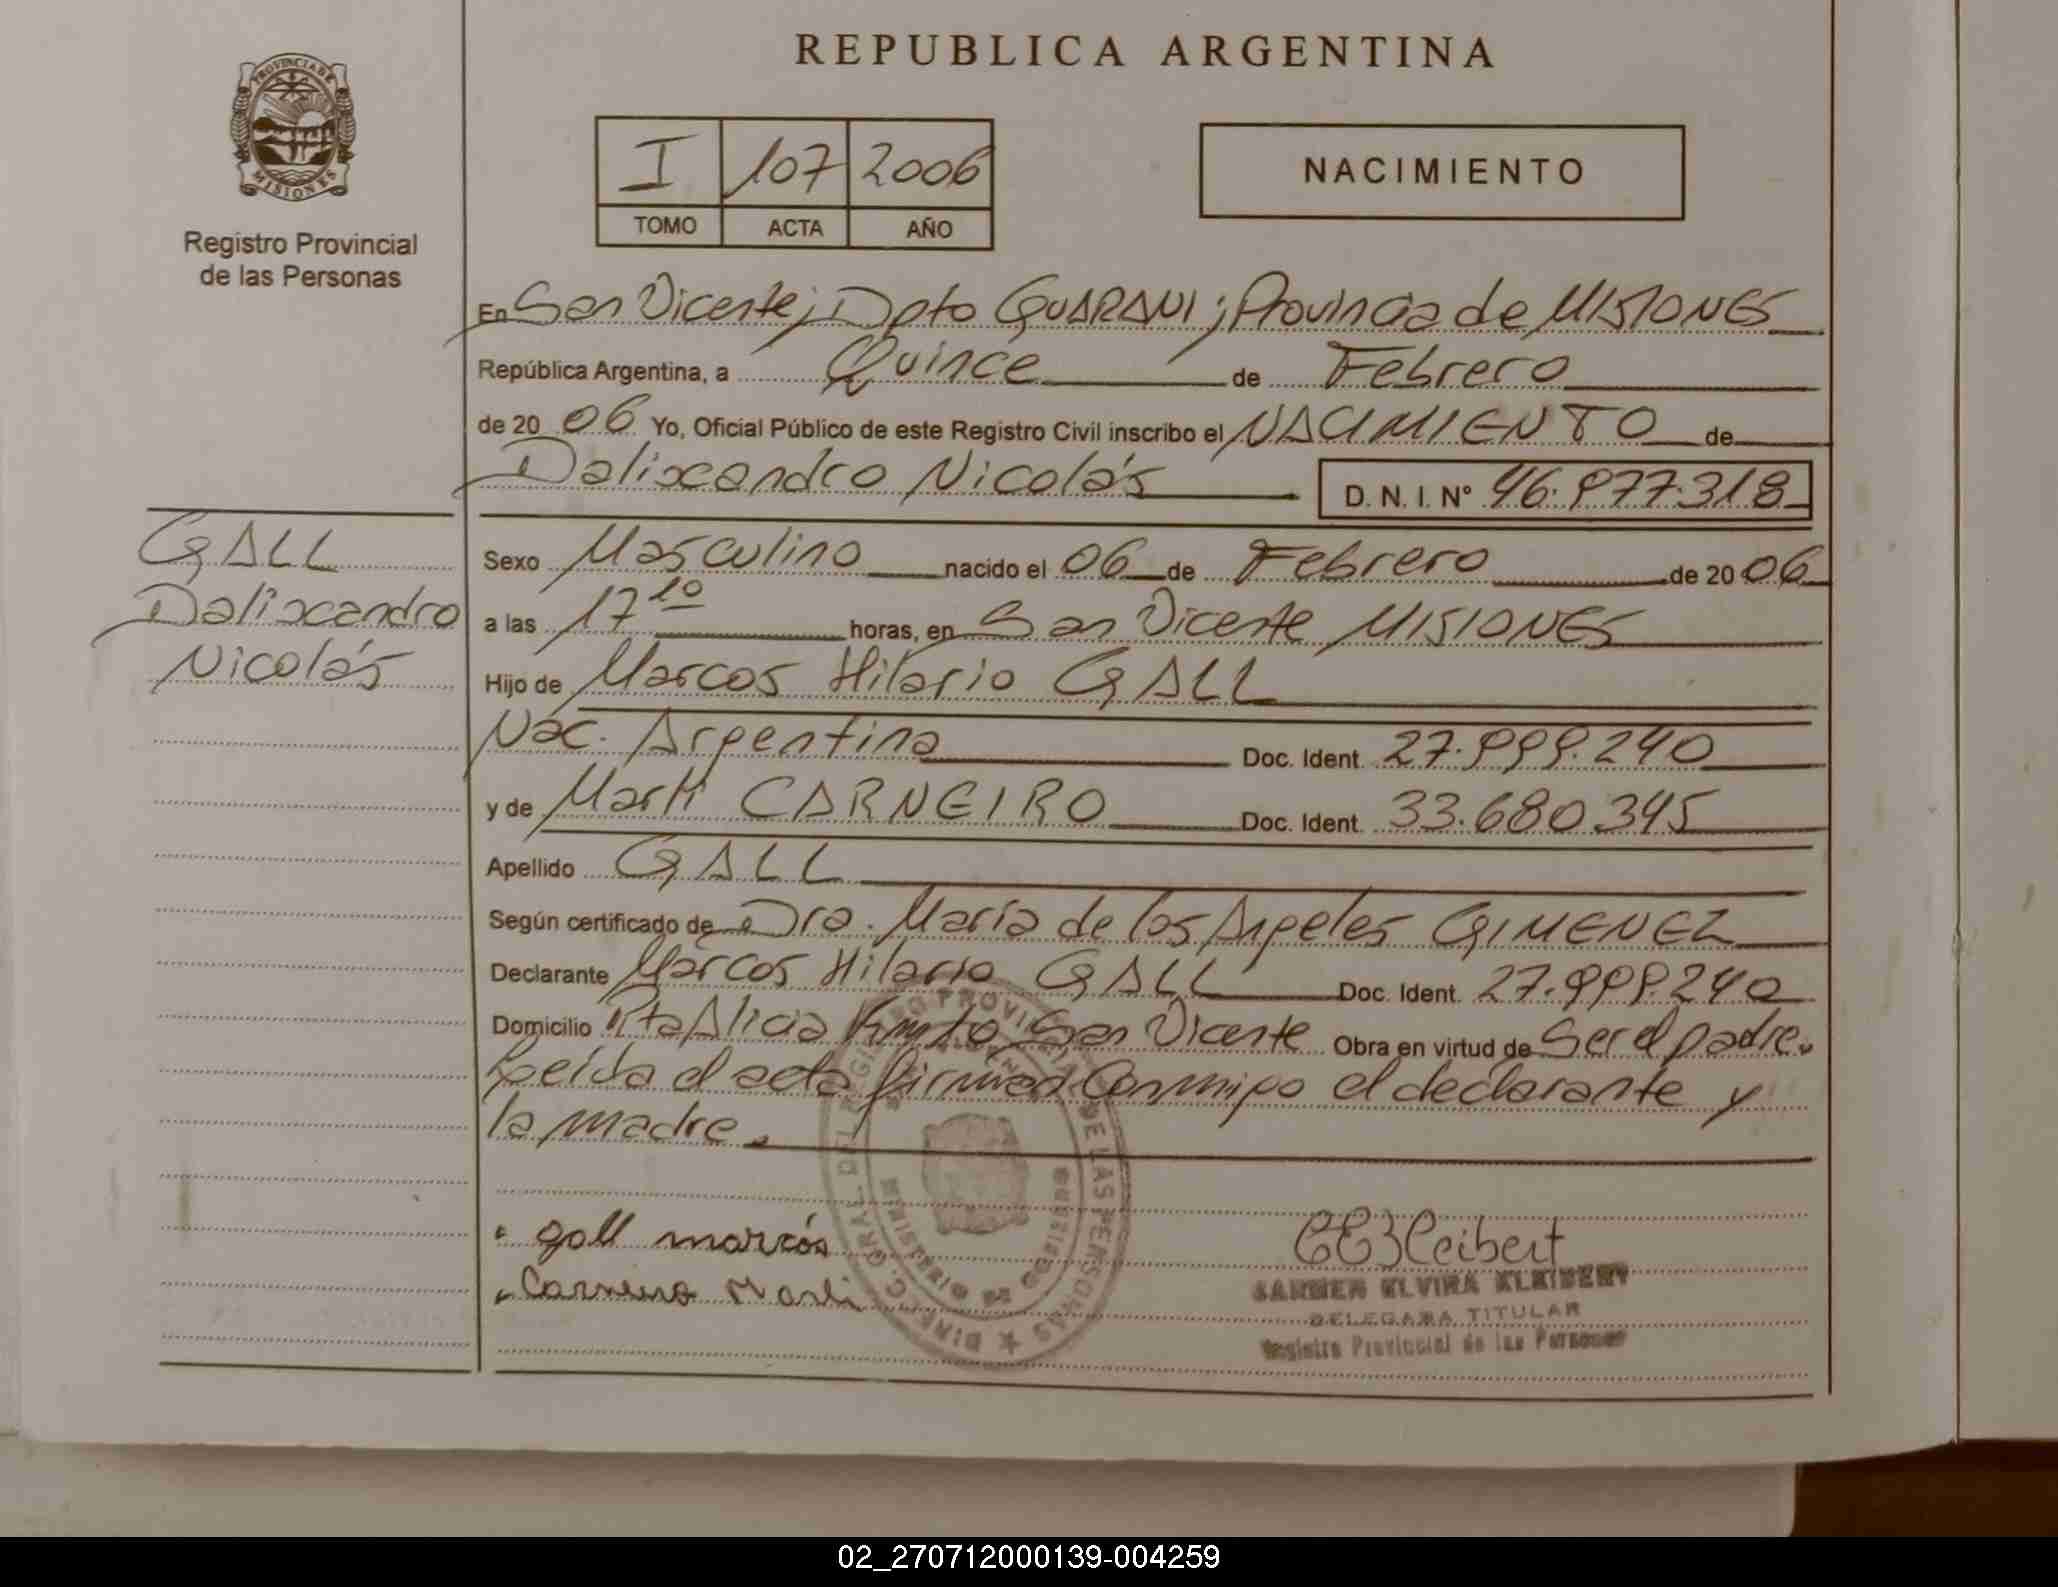 REPUBLICA ARGENTINA
PROVINCIA DE
MISIONES
Registro Provincial
de las Personas
I 107 2006
TOMO ACTA AÑO
NACIMIENTO
En San Vicente; Dpto GUARANI; Provincia de MISIONES
República Argentina, a Quince de Febrero
de 20 06 Yo, Oficial Público de este Registro Civil inscribo el NACIMIENTO de
Dalixandro Nicolás D. N. I. Nº 46.977.318
GALL
Dalixandro
Nicolás
Sexo Masculino nacido el 06 de Febrero de 20 06
a las 17 10 horas, en San Vicente MISIONES
Hijo de Marcos Hilario GALL
Nac. Argentina Doc. Ident. 27.999.240
y de Marli CARNEIRO Doc. Ident. 33.680.345
Apellido GALL
Según certificado de Dra. María de los Angeles GIMENEZ
Declarante Marcos Hilario GALL Doc. Ident. 27.999.240
Domicilio Pta Alicia San Vicente Obra en virtud de Ser el padre.
Leída el acta firman Conmigo el declarante y
la madre.
gall marcos
Carneiro Marli
CEKleibert
CARMEN ELVIRA KLEIBERT
DELEGADA TITULAR
Registro Provincial de las Personas
DIREC. GRAL. DEL REGISTRO PROVINCIAL DE LAS PERSONAS
02_270712000139-004259